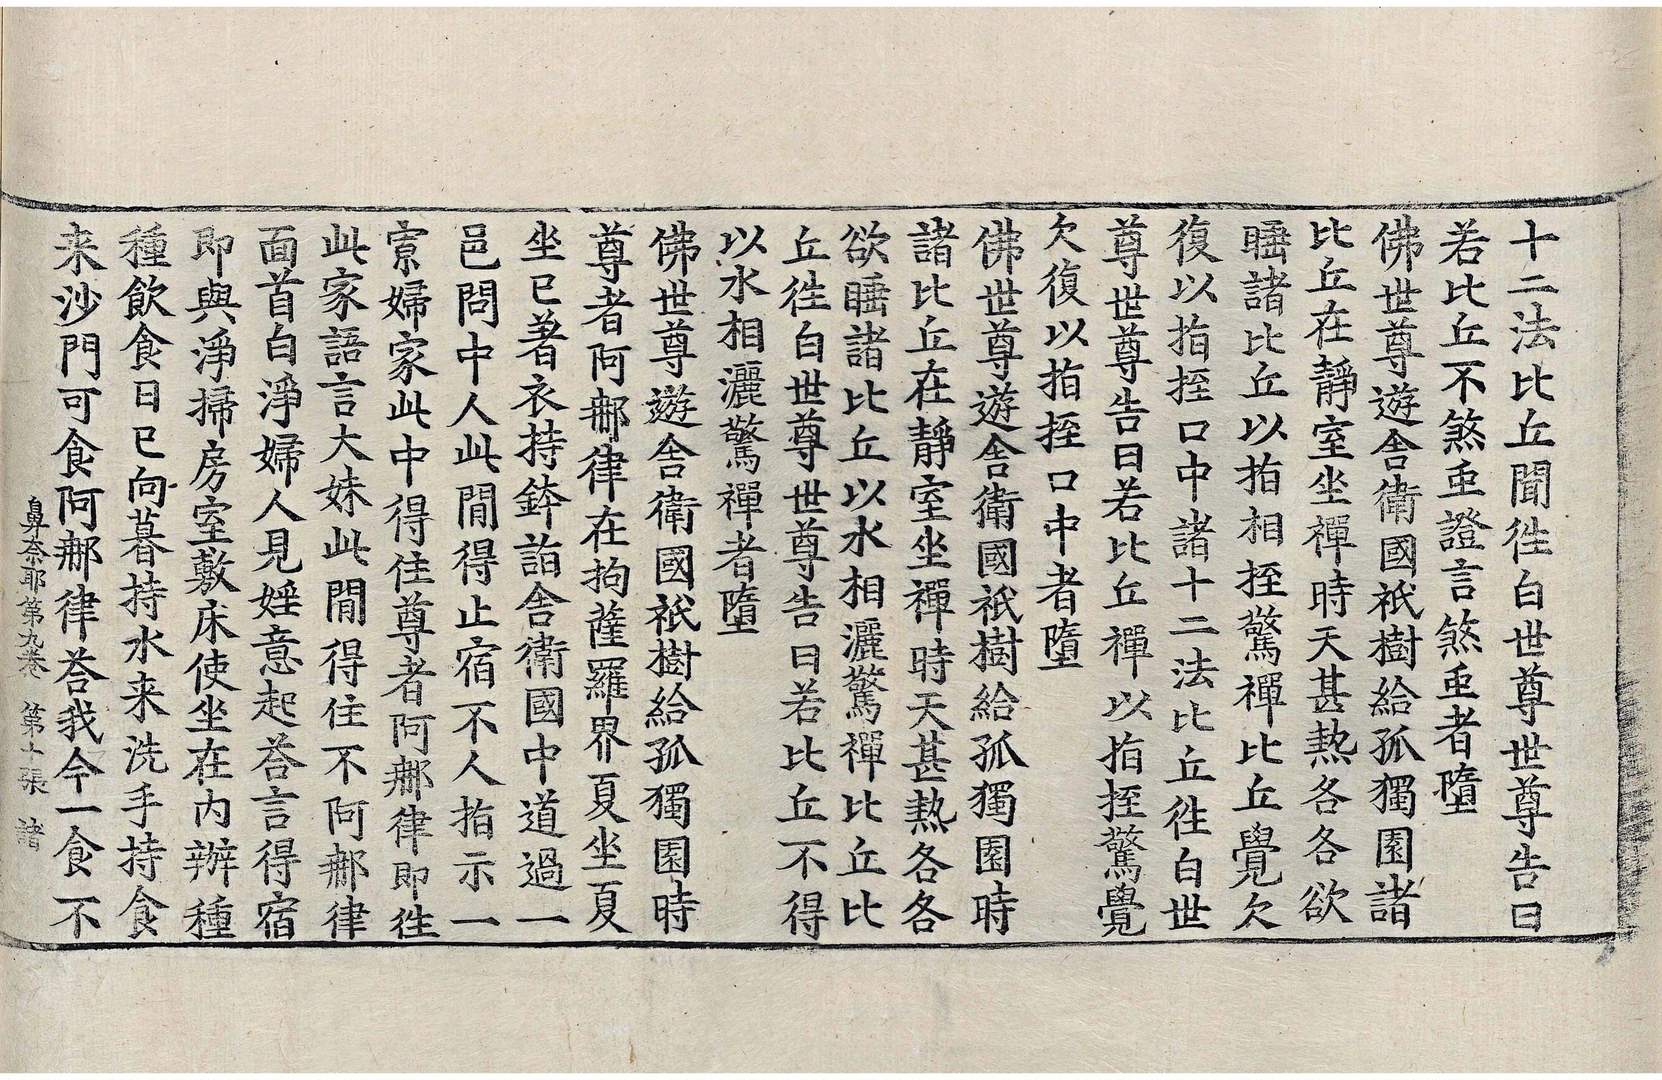 十二法比丘聞徃白世尊世尊告曰
若比丘不煞䖝證言煞䖝者墮
佛世尊遊舎衛國祇樹給孤獨園諸
比丘在靜室坐禪時天甚熱各各欲
睡諸比丘以指相挃驚禪比丘覺欠
復以指挃口中諸十二法比丘徃白世
尊世尊告曰若比丘禪以指挃驚覺
欠復以指挃口中者墮
佛世尊遊舎衛國祇樹給孤獨園時
諸比丘在靜室坐禪時天甚熱各各
欲睡諸比丘以水相灑驚禪比丘比
丘徃白世尊世尊告曰若比丘不得
以水相灑驚禪者墮
佛世尊遊舎衛國祇樹給孤獨園時
尊者阿那律在拘薩羅界夏坐夏
坐已著衣持鉢詣舎衛國中道過一
邑問中人此間得止宿不人指示一
寡婦家此中得住尊者阿那律即徃
此家語言大妹此間得住不阿那律
面首白淨婦人見婬意起荅言得宿
即與淨掃房室敷床使坐在內辦種
種飲食日已向暮持水来洗手持食
来沙門可食阿那律荅我今一食不
鼻奈耶第九卷 第十張 諸